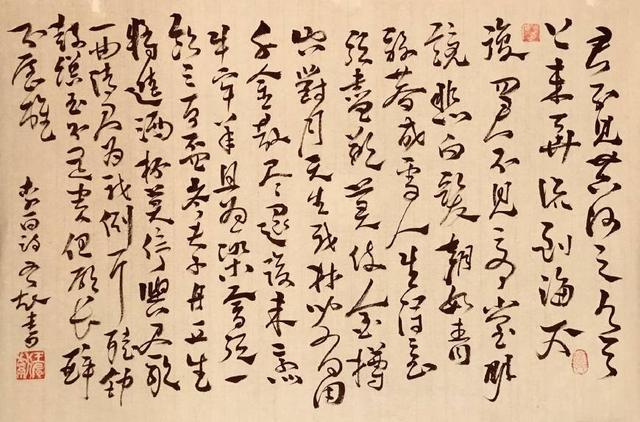 君不見黃河之水天
上來奔流到海不
復回君不見高堂明
鏡悲白髮朝如青
絲暮成雪人生得意
須盡歡莫使金樽
空對月天生我材必有用
千金散盡還復來烹
羊宰牛且為樂會須一
飲三百盃岑夫子丹丘生
將進酒杯莫停與君歌
一曲請君為我側耳聽鐘
鼓饌玉不足貴但願長醉
不願醒
李白詩書